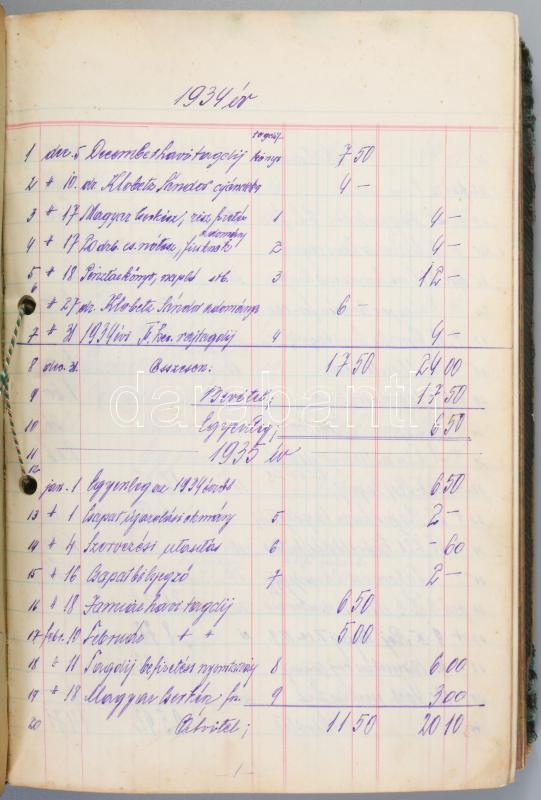 1934 év
1 dec. 5 Decemberhavi tagdíj könyv 7 50
2 " 10. dr. Klobetz Sándor 4 —
3 " 17 Magyar Cserkész, 1 4 —
4 " 17 20 drb. cs. nótás, fiuknak 2 4 —
5 " 18 Pénztárkönyv, napló stb. 3 12 —
6 " 27 dr. Klobetz Sándor adománya 6 —
7 " 31 1934 évi II. 4 4 —
8 dec. 31. Összesen: 17 50 24 00
9 Bevétel; 17 50
10 Egyenleg; 6 50
11 1935 év
12 jan. 1 Egyenleg az 1934 évből 6 50
13 " 1 Csapat igazolási okmány 5 2 —
14 " 4 Szervezési utasítás 6 — 60
15 " 16 Csapatbélyegző 7 2 —
16 " 18 Januárhavi tagdíj 6 50
17 febr. 18 Február " " 5 00
18 " 18 Tagdíj befizetési 8 6 00
19 " 18 Magyar Cserkész 9 3 00
20 Átvitel; 11 50 20 10
— 1 —
darabanth